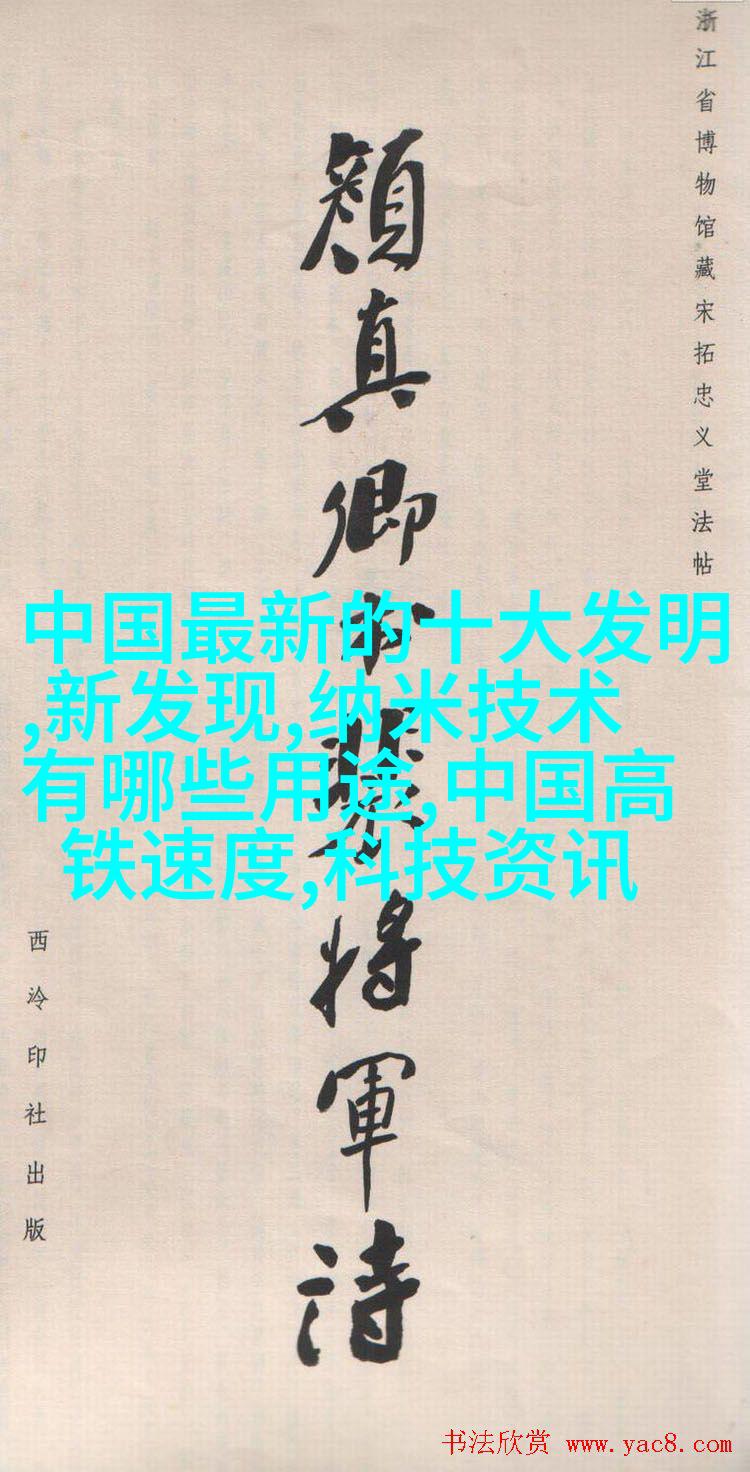 浙江省博物馆藏宋拓忠义堂法帖
顏真卿书裴将軍诗
西泠印社出版
中国最新的十大发明
,新发现,纳米技术
有哪些用途,中国高
铁速度,科技资讯
书法欣赏 www.yac8.com